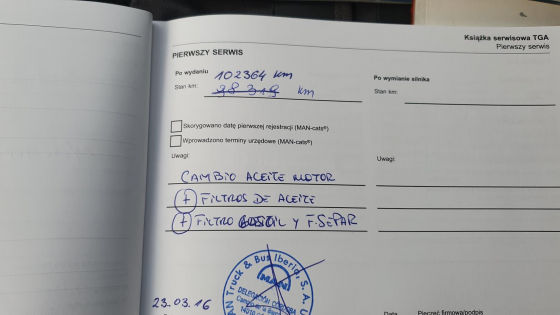 Książka serwisowa TGA
Pierwszy serwis
PIERWSZY SERWIS
Po wydaniu 102364 km
Stan km: 98 319 km
Po wymianie silnika
Stan km:
Skorygowano datę pierwszej rejestracji (MAN-cats®)
Wprowadzono terminy urzędowe (MAN-cats®)
Uwagi:
Uwagi:
CAMBIO ACEITE MOTOR
+ FILTROS DE ACEITE
+ FILTRO Y F. SEPAR
MAN Truck & Bus Iberia, S. A. U.
MAN
DELEGACIÓN CÓRDOBA
23.03.16
Data Pieczęć firmowa/podpis